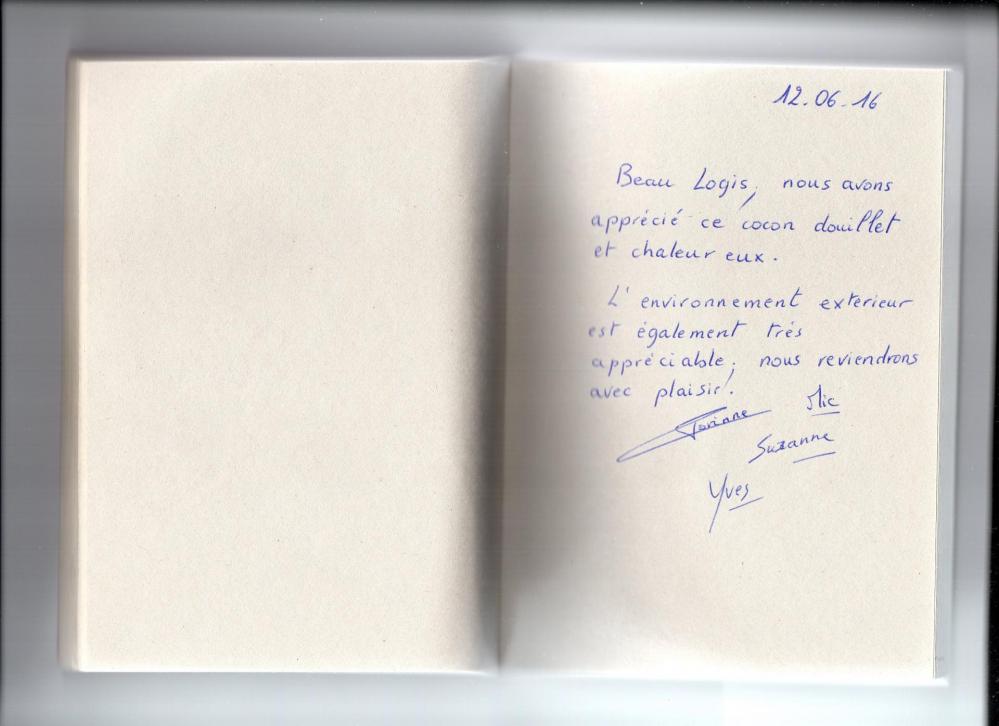 12.06.16
Beau Logis, nous avons
apprécié ce cocon douillet
et chaleureux.
L'environnement exterieur
est également très
appréciable, nous reviendrons
avec plaisir!
Mic
Suzanne
Yves